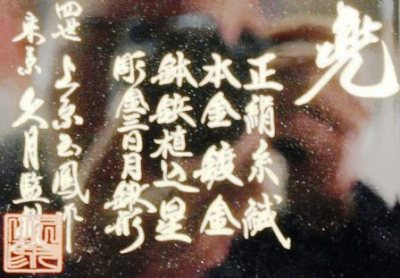 兜
正絹糸縅
本金鍍金
鉢鋲植込星
彫金三日月鍬形
四世 上京玉鳳作
東京 久月監製